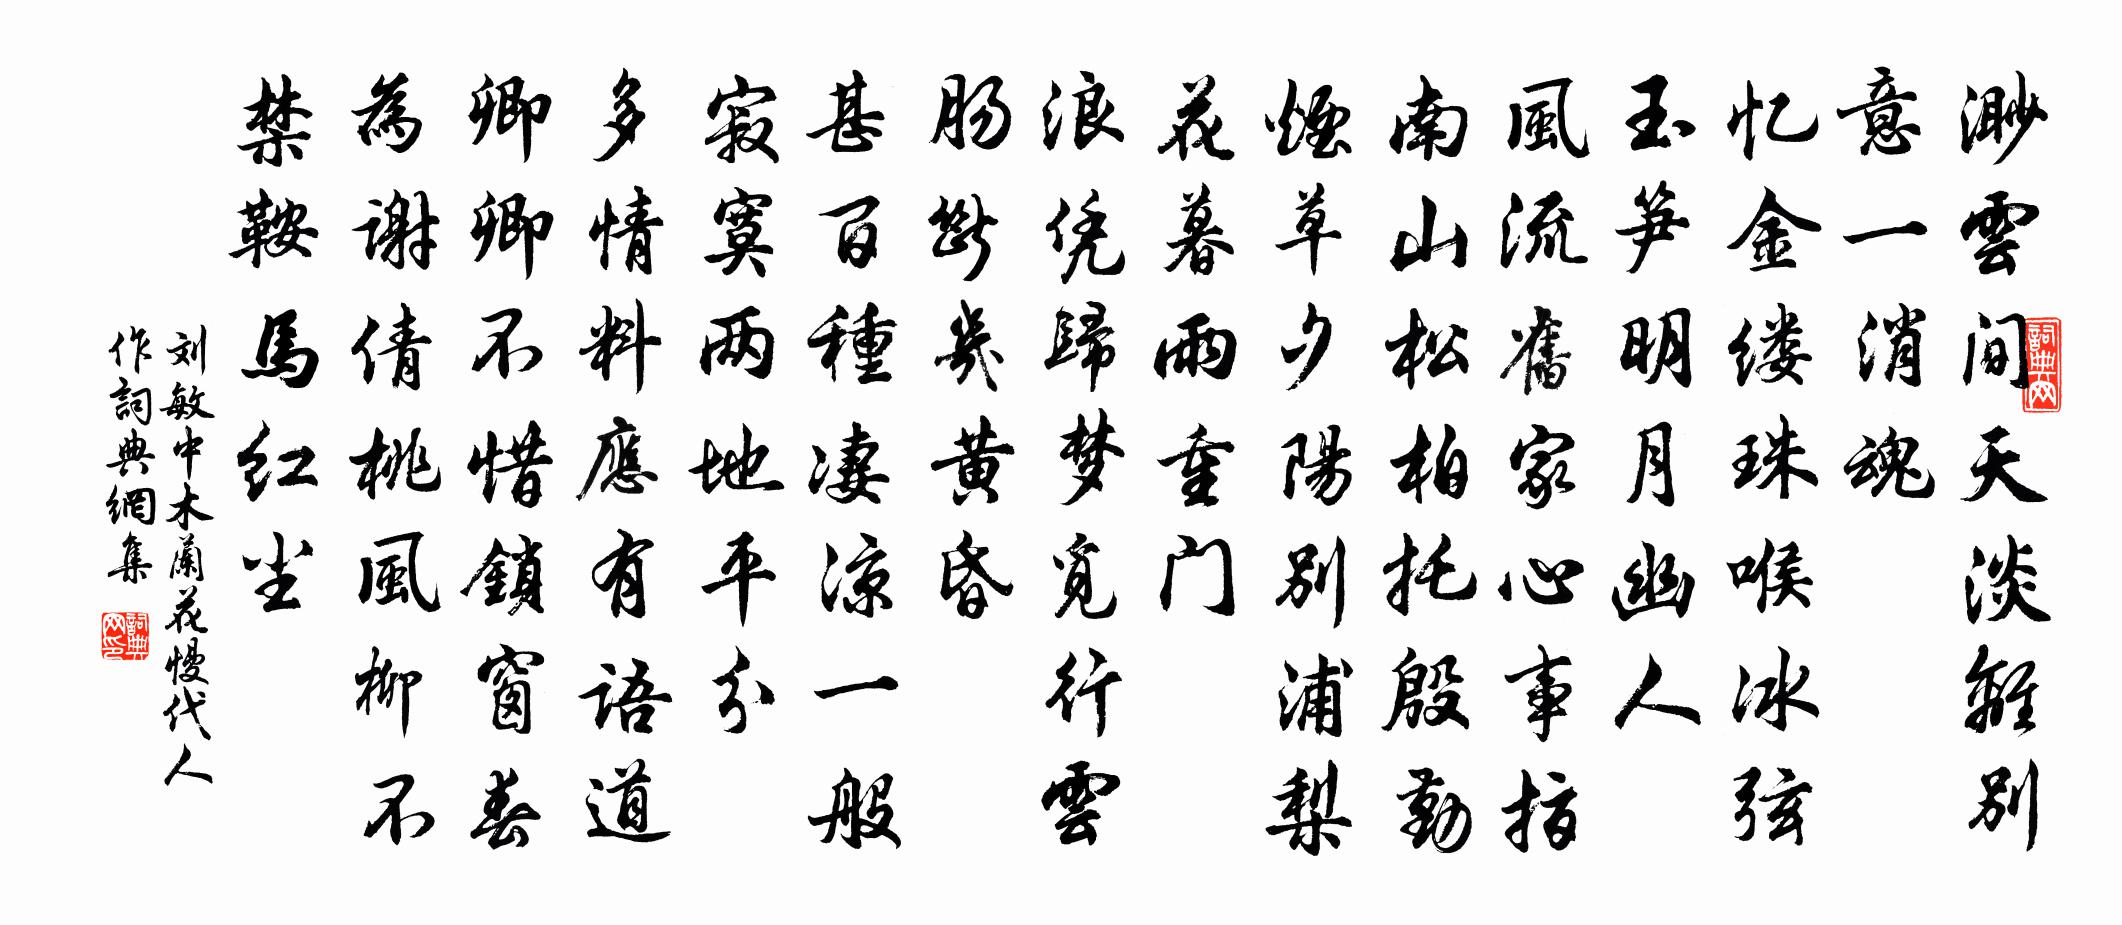 渺雲间天淡離别
意一消魂
忆金缕珠喉冰弦
玉笋明月幽人
風流舊家心事指
南山松柏托殷勤
煙草夕陽别浦梨
花暮雨重门
浪凭歸梦觅行雲
肠斷幾黄昏
甚百種凄凉一般
寂寞两地平分
多情料應有語道
卿卿不惜鎖窗春
為謝倩桃風柳不
禁鞍馬红尘
刘敏中木蘭花慢代人
作詞典網集
詞典网
詞典网印